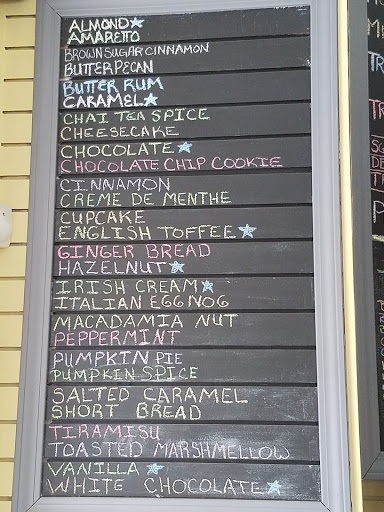 ALMOND★
AMARETTO
BROWN SUGAR CINNAMON
BUTTER PECAN
BUTTER RUM
CARAMEL★
CHAI TEA SPICE
CHEESECAKE
CHOCOLATE★
CHOCOLATE CHIP COOKIE
CINNAMON
CREME DE MENTHE
CUPCAKE
ENGLISH TOFFEE★
GINGER BREAD
HAZELNUT★
IRISH CREAM★
ITALIAN EGG NOG
MACADAMIA NUT
PEPPERMINT
PUMPKIN PIE
PUMPKIN SPICE
SALTED CARAMEL
SHORT BREAD
TIRAMISU
TOASTED MARSHMELLOW
VANILLA ★
WHITE CHOCOLATE★